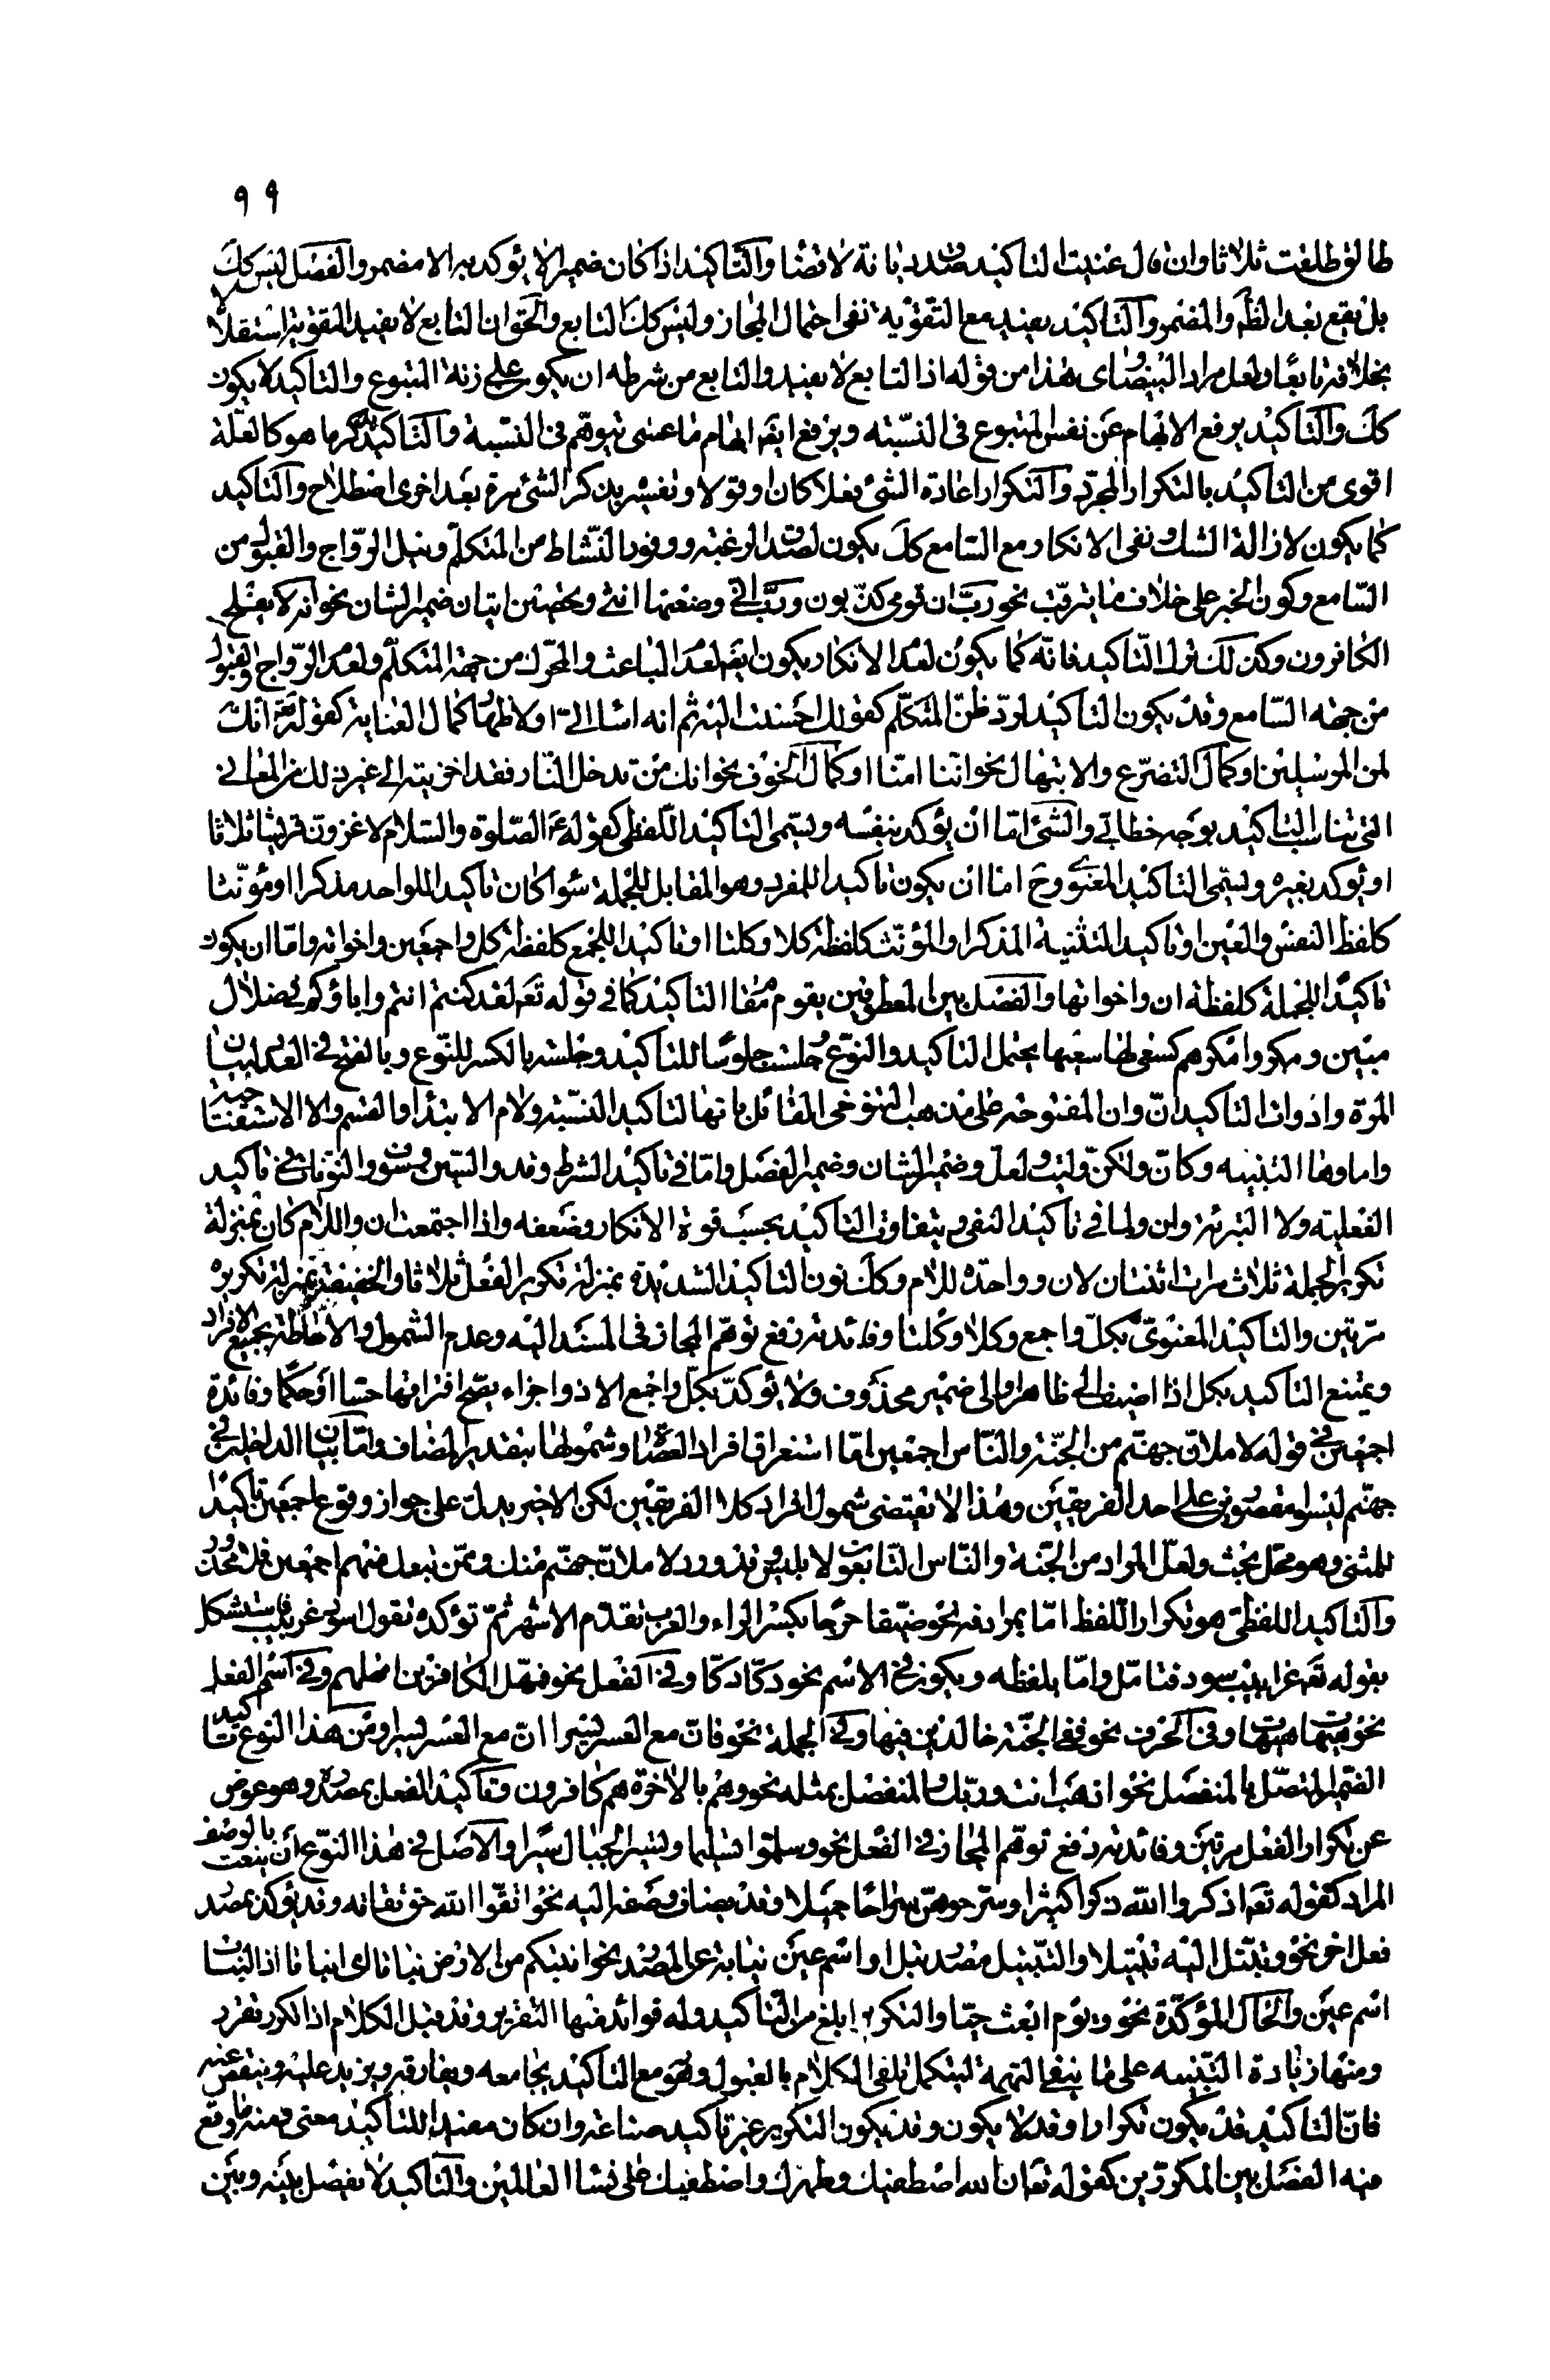 ٩٩
طالق طلقت ثلاثا وان قال عنيت التاكيد صدق ديانة لا قضا والتاكيد اذا كان ضميرا لا يؤكد به الا مضمر والفصل ليس كك
بل يقع بعد الظ والمضمر والتاكيد يفيد مع التقوية نفى احتمال المجاز وليس كك التابع والحق ان التابع لا يفيد التقوية استقلالا
بخلافه تابعا ولعل مراد البيضاوى هذا من قوله اذ التابع لا يفيد والتابع من شرطه ان يكون على زنة المتبوع والتاكيد لا يكون
كك والتاكيد يرفع الابهام عن نفس المتبوع فى النسبة ويرفع ايضا ابهام ما عسى يتوهم فى النسبة والتاكيد بذكر ما هو كالعلة
اقوى من التاكيد بالتكرار المجرد والتكرار اعادة الشئ فعلا كان او قولا وتفسيره بذكر الشئ مرة بعد اخرى اصطلاح والتاكيد
كما يكون لازالة الشك ونفى الانكار مع السامع كك يكون لصدق الرغبة ووفور النشاط من المتكلم ونيل الرواج والقبول من
السامع وكون الخبر على خلاف ما يترقب نحو رب ان قومى كذبون ورب انى وضعتها انثى وبحضهن اتيان ضمير الشان نحو انه لا يفلح
الكافرون وكذلك ترك التاكيد فانه كما يكون لعدم الانكار يكون ايضا لعدم الباعث والمحرك من جهة المتكلم ولعدم الرواج والقبول
من جهة السامع وقد يكون التاكيد لرد ظن المتكلم كقولك احسنت اليه ثم انه اسا الى او لاظهار كمال العناية كقوله تع انك
لمن المرسلين او كمال التضرع والابتهال نحو اننا امنا او كمال الخوف نحو انك من تدخل النار فقد اخزيته الى غير ذلك من المعانى
التى تناسب التاكيد بوجه خطابى والشئ اما ان يؤكد بنفسه ويسمى التاكيد اللفظى كقوله عم الصلوة والسلام لاغزون قريشا ثلاثا
او يؤكد بغيره ويسمى التاكيد المعنوى وح اما ان يكون تاكيدا للمفرد وهو المقابل للجملة سوا كان تاكيدا للواحد مذكرا او مؤنثا
كلفظ النفس والعين او تاكيدا لتثنية المذكر او المؤنث كلفظة كلا وكلتا او تاكيدا للجمع كلفظة كل واجمعين واخواته واما ان يكون
تاكيدا للجملة كلفظة ان واخواتها والفصل بين المعطوفين يقوم مقام التاكيد كما فى قوله تع لقد كنتم انتم واباؤكم فى ضلال
مبين ومكروا مكرهم كسعى لها سعيها يحتمل التاكيد والنوع وجلست جلوسا للتاكيد وجلسة بالكسر للنوع وبالفتح فى العدد لبيان
المرة وادوات التاكيد ان وان المفتوحة على مذهب التنوخى القائل بانها لتاكيد النسبة ولام الابتدا والقسم والا الاستفتاحية
واما وها التنبيه وكان ولكن وليت ولعل وضمير الشان وضمير الفصل واما فى تاكيد الشرط وقد والسين وسوف والنونان فى تاكيد
الفعلية ولا التبرئة ولن ولما فى تاكيد النفى ويتفاوت التاكيد بحسب قوة الانكار وضعفه واذا اجتمعت ان واللام كان بمنزلة
تكرير الجملة ثلاث مرات اثنتان لان وواحدة للام وكك نون التاكيد الشديدة بمنزلة تكرير الفعل ثلاثا والخفيفة بمنزلة تكريره
مرتين والتاكيد المعنوى بكل واجمع وكلا وكلتا وفائدته رفع توهم المجاز فى المسند اليه وعدم الشمول والاحاطة بجميع الافراد
ويمتنع التاكيد بكل اذا اضيف الى ظاهر او الى ضمير محذوف ولا يؤكد بكل واجمع الا ذو اجزاء يصح افتراقها حسا او حكما وفائدة
اجمعين فى قوله لاملان جهنم من الجنة والناس اجمعين اما استغراق افراد العصاة وشمولها بتقدير المضاف واما بيان الداخلين فى
جهنم ليسوا مقصورين على احد الفريقين وهذا لا يقتضى شمول افراد كلا الفريقين لكن الاخير يدل على جواز وقوع اجمعين تاكيدا
للمثنى وهو محل بحث ولعل المراد من الجنة والناس التابعون لابليس فقد ورد لاملان جهنم منك وممن تبعك منهم اجمعين فلا محذور
والتاكيد اللفظى هو تكرار اللفظ اما بمرادفه نحو ضيقا حرجا بكسر الراء والعرب تقدم الاشهر ثم تؤكده تقول اسود غربيب فاستشكل
بقوله تع غرابيب سود فتامل واما بلفظه ويكون فى الاسم نحو دكا دكا وفى الفعل نحو فمهل الكافرين امهلهم وفى اسم الفعل
نحو هيهات هيهات وفى الحرف نحو ففى الجنة خالدين فيها وفى الجملة نحو فان مع العسر يسرا ان مع العسر يسرا ومن هذا النوع تاكيد
الضمير المتصل بالمنفصل نحو اذهب انت وربك والمنفصل بمثله نحو وهم بالاخرة هم كافرون وتاكيد الفعل بمصدره وهو عوض
عن تكرار الفعل مرتين وفائدته رفع توهم المجاز فى الفعل نحو وسلموا تسليما وتسير الجبال سيرا والاصل فى هذا النوع ان ينعت بالوصف
المراد كقوله تع اذكروا الله ذكرا كثيرا وسرحوهن سراحا جميلا وقد يضاف وصفه اليه نحو اتقوا الله حق تقاته وقد يؤكد بمصدر
فعل اخر نحو وتبتل اليه تبتيلا والتبتيل مصدر بتل او اسم عين نيابة عن المصدر نحو انبتكم من الارض نباتا اى انباتا اذ النبات
اسم عين والحال المؤكدة نحو ويوم ابعث حيا والتكرير ابلغ من التاكيد وله فوائد منها التقرير وقد قيل الكلام اذا تكرر تقرر
ومنها زيادة التنبيه على ما ينفى التهمة ليكمل تلقى الكلام بالقبول وهو مع التاكيد يجامعه ويفارقه ويزيد عليه وينقص عنه
فان التاكيد قد يكون تكرارا وقد لا يكون وقد يكون التكرير غير تاكيد صناعة وان كان مفيدا للتاكيد معنى ومنه ما وقع
فيه الفصل بين المكررين كقوله تع ان الله اصطفيك وطهرك واصطفيك على نسا العالمين والتاكيد لا يفصل بينه وبين